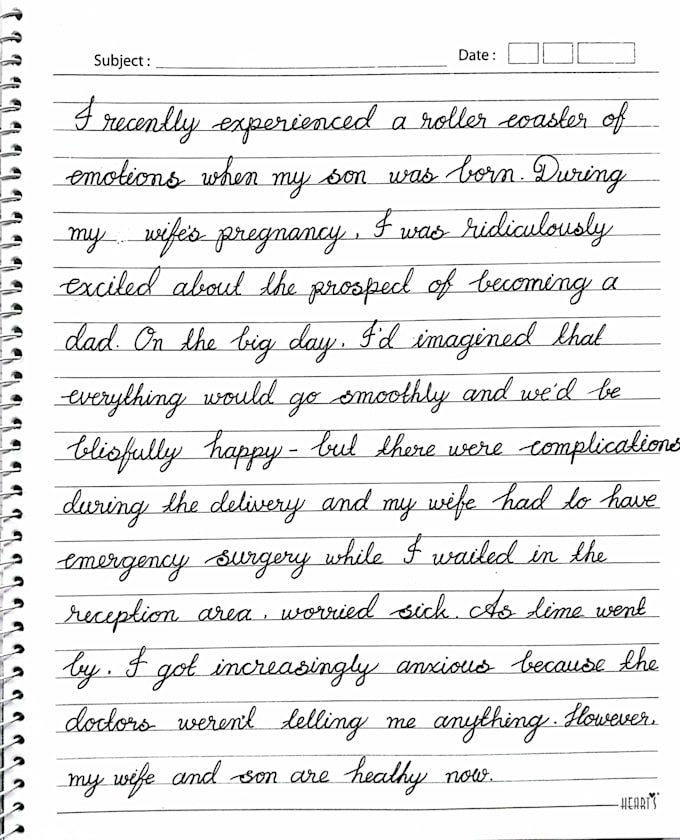 Subject :
Date :
I recently experienced a roller coaster of
emotions when my son was born. During
my wife's pregnancy, I was ridiculously
excited about the prospect of becoming a
dad. On the big day, I'd imagined that
everything would go smoothly and we'd be
blisfully happy - but there were complications
during the delivery and my wife had to have
emergency surgery while I waited in the
reception area, worried sick. As time went
by, I got increasingly anxious because the
doctors weren't telling me anything. However,
my wife and son are healhy now.
HEART'S